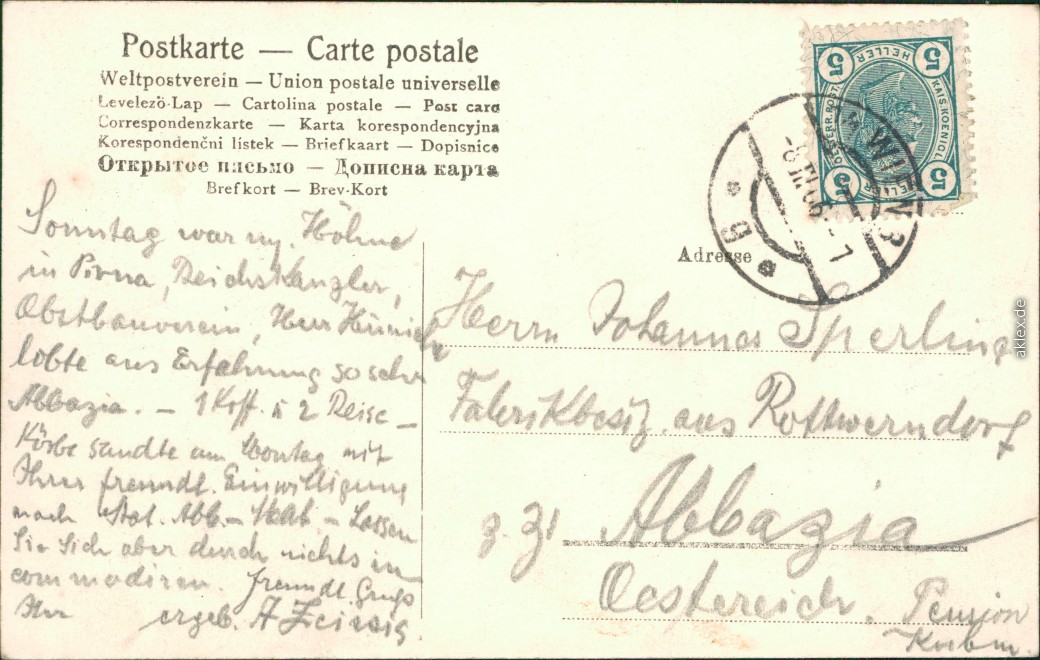 Postkarte — Carte postale
Weltpostverein — Union postale universelle
Levelező-Lap — Cartolina postale — Post card
Correspondenzkarte — Karta korespondencyjna
Korespondenční lístek — Briefkaart — Dopisnice
Открытое письмо — Дописна карта
Brefkort — Brev-Kort
5 HELLER 5
KAIS. KOENIGL.
OESTERR. POST.
5 HELLER 5
WIEN
Adresse
Sonntag war
in Pirna, Reichskanzler,
Obstbauverein, Herr
lobte aus Erfahrung so sehr
Abbazia. — 1 Koff. à 2 Reise-
Körbe sandte am Montag mit
Ihrer freundl. Einwilligung
nach Stat. Abb.- — Lassen
Sie Sich aber durch nichts in
commodiren. freundl. Gruß
Ihr ergeb. A
Herrn Johannes Sperling
Fabrikbesitz. aus Rottwerndorf
z. Zt Abbazia
Oestereich. Pension
aklex.de